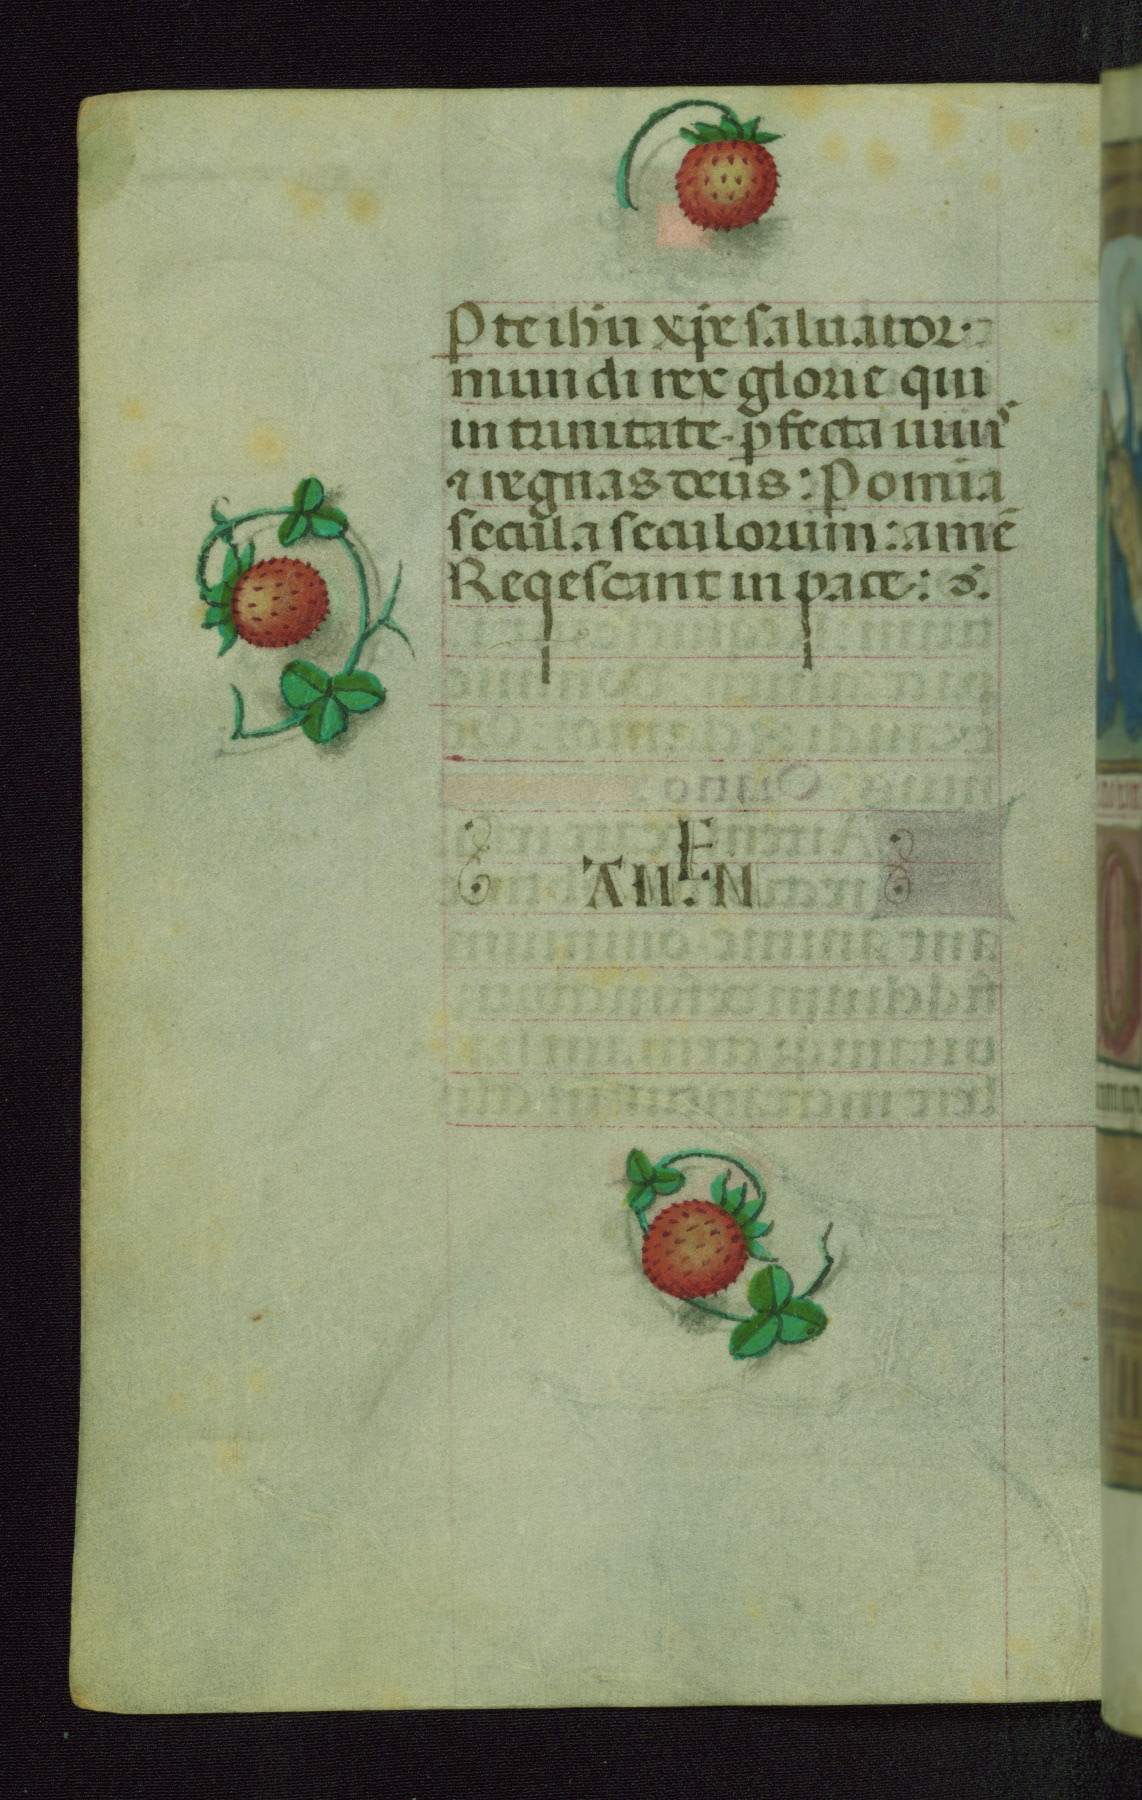 P te ihu xpe saluator
mundi rex glorie qui
in trinitate pfecta uiui
⁊ regnas deus : P omia
secula seculorum : amē
Reqescant in pace :
AMEN